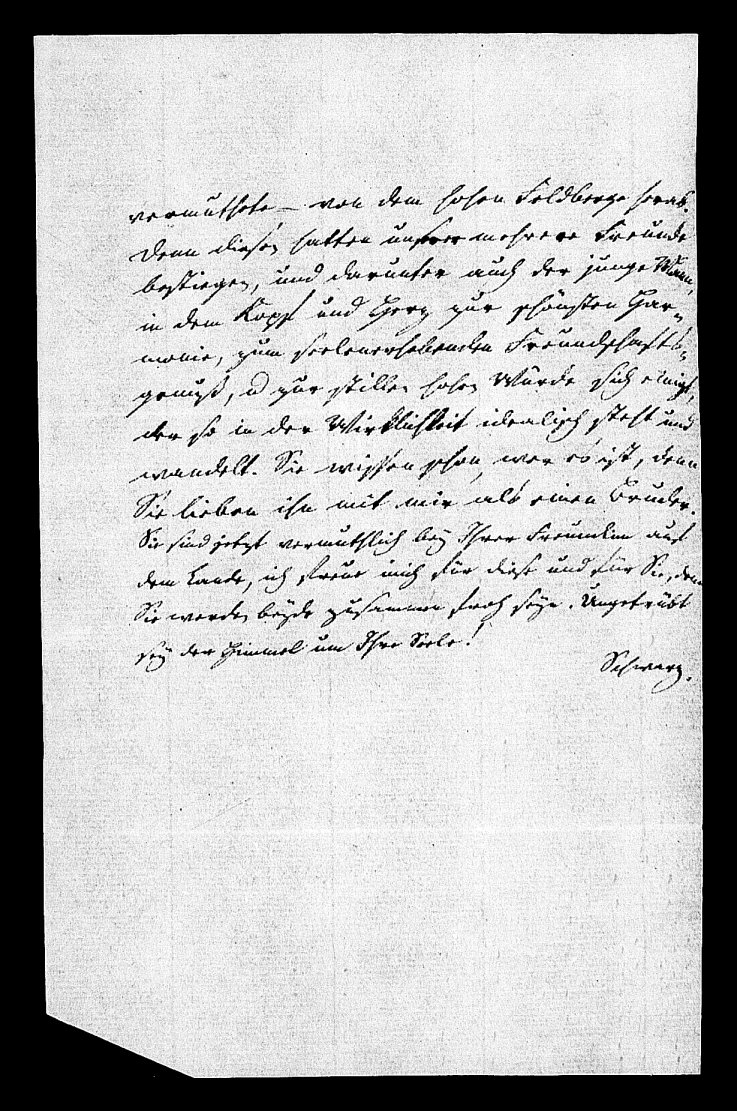 vermuthete — von dem hohen Feldberge herab.
Denn diesen hatten unsrer mehrere Freunde
bestiegen, und darunter auch der junge Mann,
in dem Kopf und Herz zur schönsten Har-
monie, zum seelenerhebenden Freundschafts-
genuß, u zur stillen hohen Würde sich einigt,
der so in der Wirklichkeit idealisch steht und
wandelt. Sie wissen schon, wer es ist, denn
Sie lieben ihn mit mir als einen Bruder.
Sie sind jetzt vermuthlich bey Ihrer Freundinn auf
dem Lande, ich freue mich für diese und für Sie, denn
Sie werden beyde zusammen froh seyn. Ungetrübt
sey der Himmel um Ihre Seele!
Schwarz.